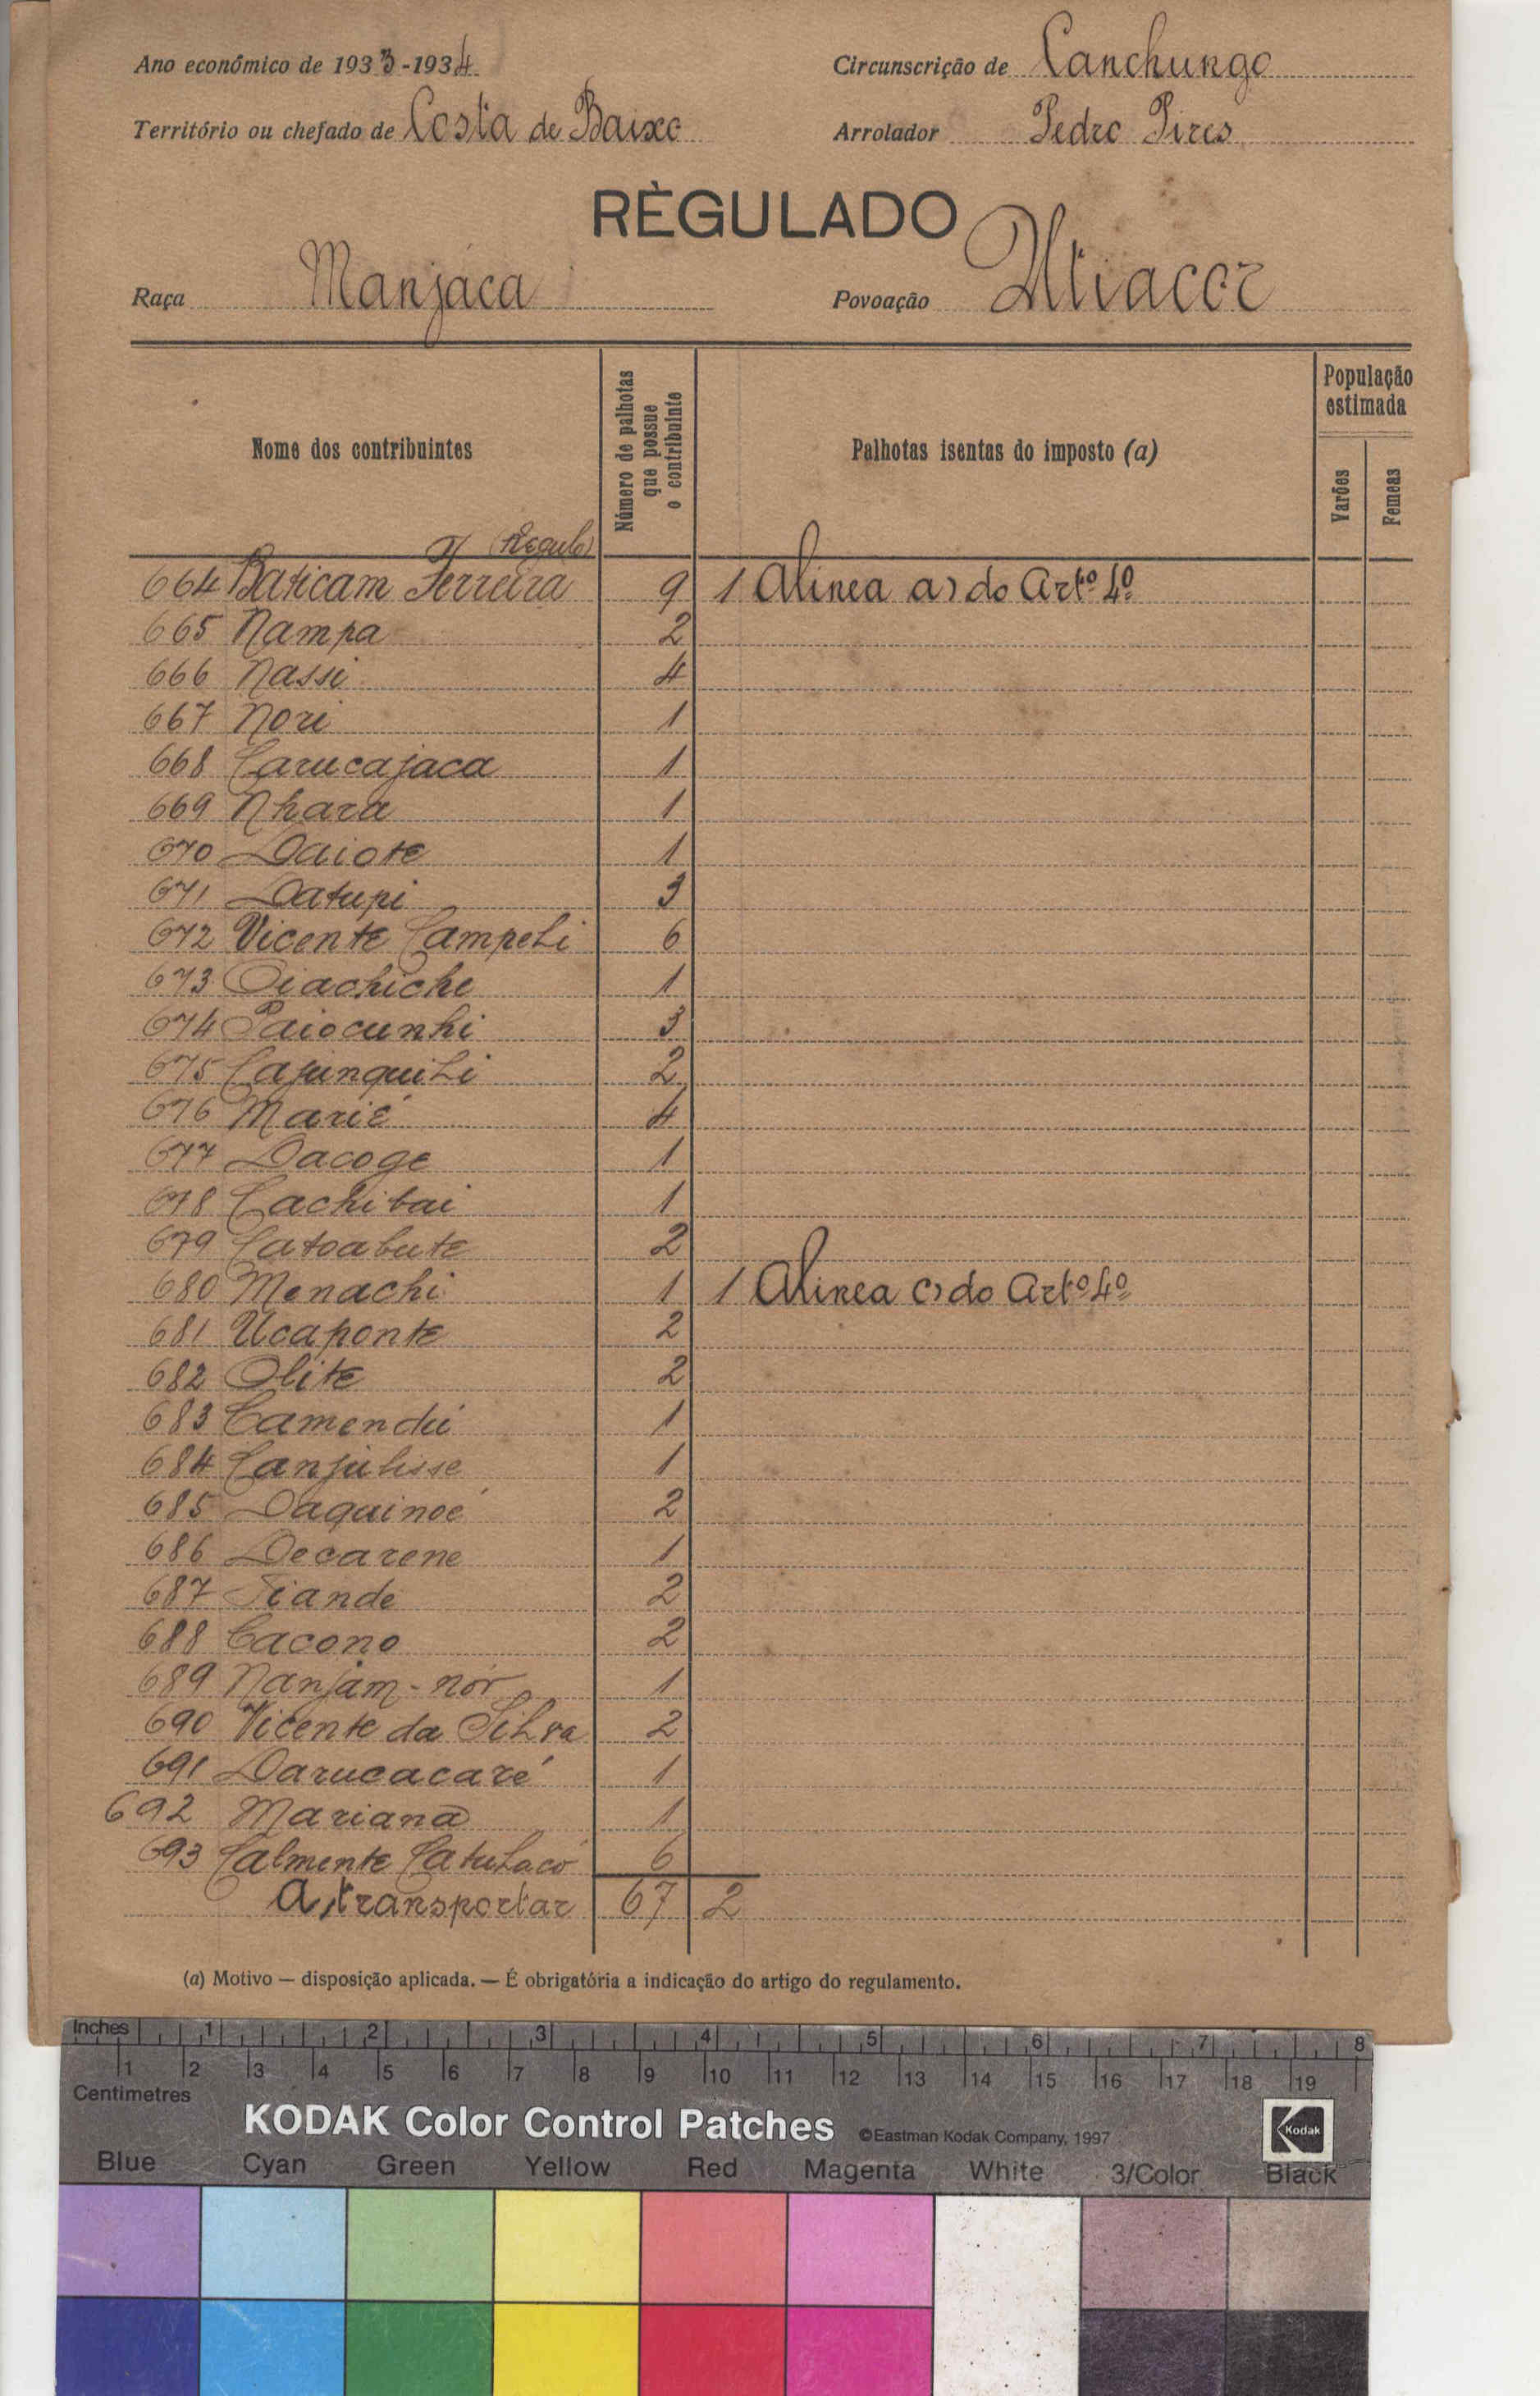 Ano económico de 1933-1934
Circunscrição de Canchungo
Território ou chefado de Costa de Baixo
Arrolador Pedro Pires
RÈGULADO
Raça Manjaca
Povoação Utiacor
Nome dos contribuintes
Número de palhotas que possue o contribuinte
Palhotas isentas do imposto (a)
População estimada
Varões
Femeas
(Regulo)
664 Baticam Ferreira 9 1 Alinea a) do Artº 4º
665 Nampa 2
666 Nassi 4
667 Nori 1
668 Carucajaca 1
669 Nhara 1
670 Daiote 1
671 Datupi 3
672 Vicente Campeli 6
673 Oiachiche 1
674 Paiocunhi 3
675 Cajunquili 2
676 Marié 4
677 Dacoge 1
678 Cachibai 1
679 Catoabute 2
680 Menachi 1 1 Alinea c) do Artº 4º
681 Ucaponte 2
682 Olite 2
683 Camendú 1
684 Canjulisse 1
685 Daquinoé 2
686 Decarene 1
687 Tiande 2
688 Cacono 2
689 Nanjam-nór 1
690 Vicente da Silva 2
691 Darucacaré 1
692 Mariana 1
693 Calmente Catulacó 6
A transportar 67 2
(a) Motivo — disposição aplicada. — É obrigatória a indicação do artigo do regulamento.
Inches 1 2 3 4 5 6 7 8
1 2 3 4 5 6 7 8 9 10 11 12 13 14 15 16 17 18 19
Centimetres
KODAK Color Control Patches ©Eastman Kodak Company, 1997 Kodak
Blue Cyan Green Yellow Red Magenta White 3/Color Black